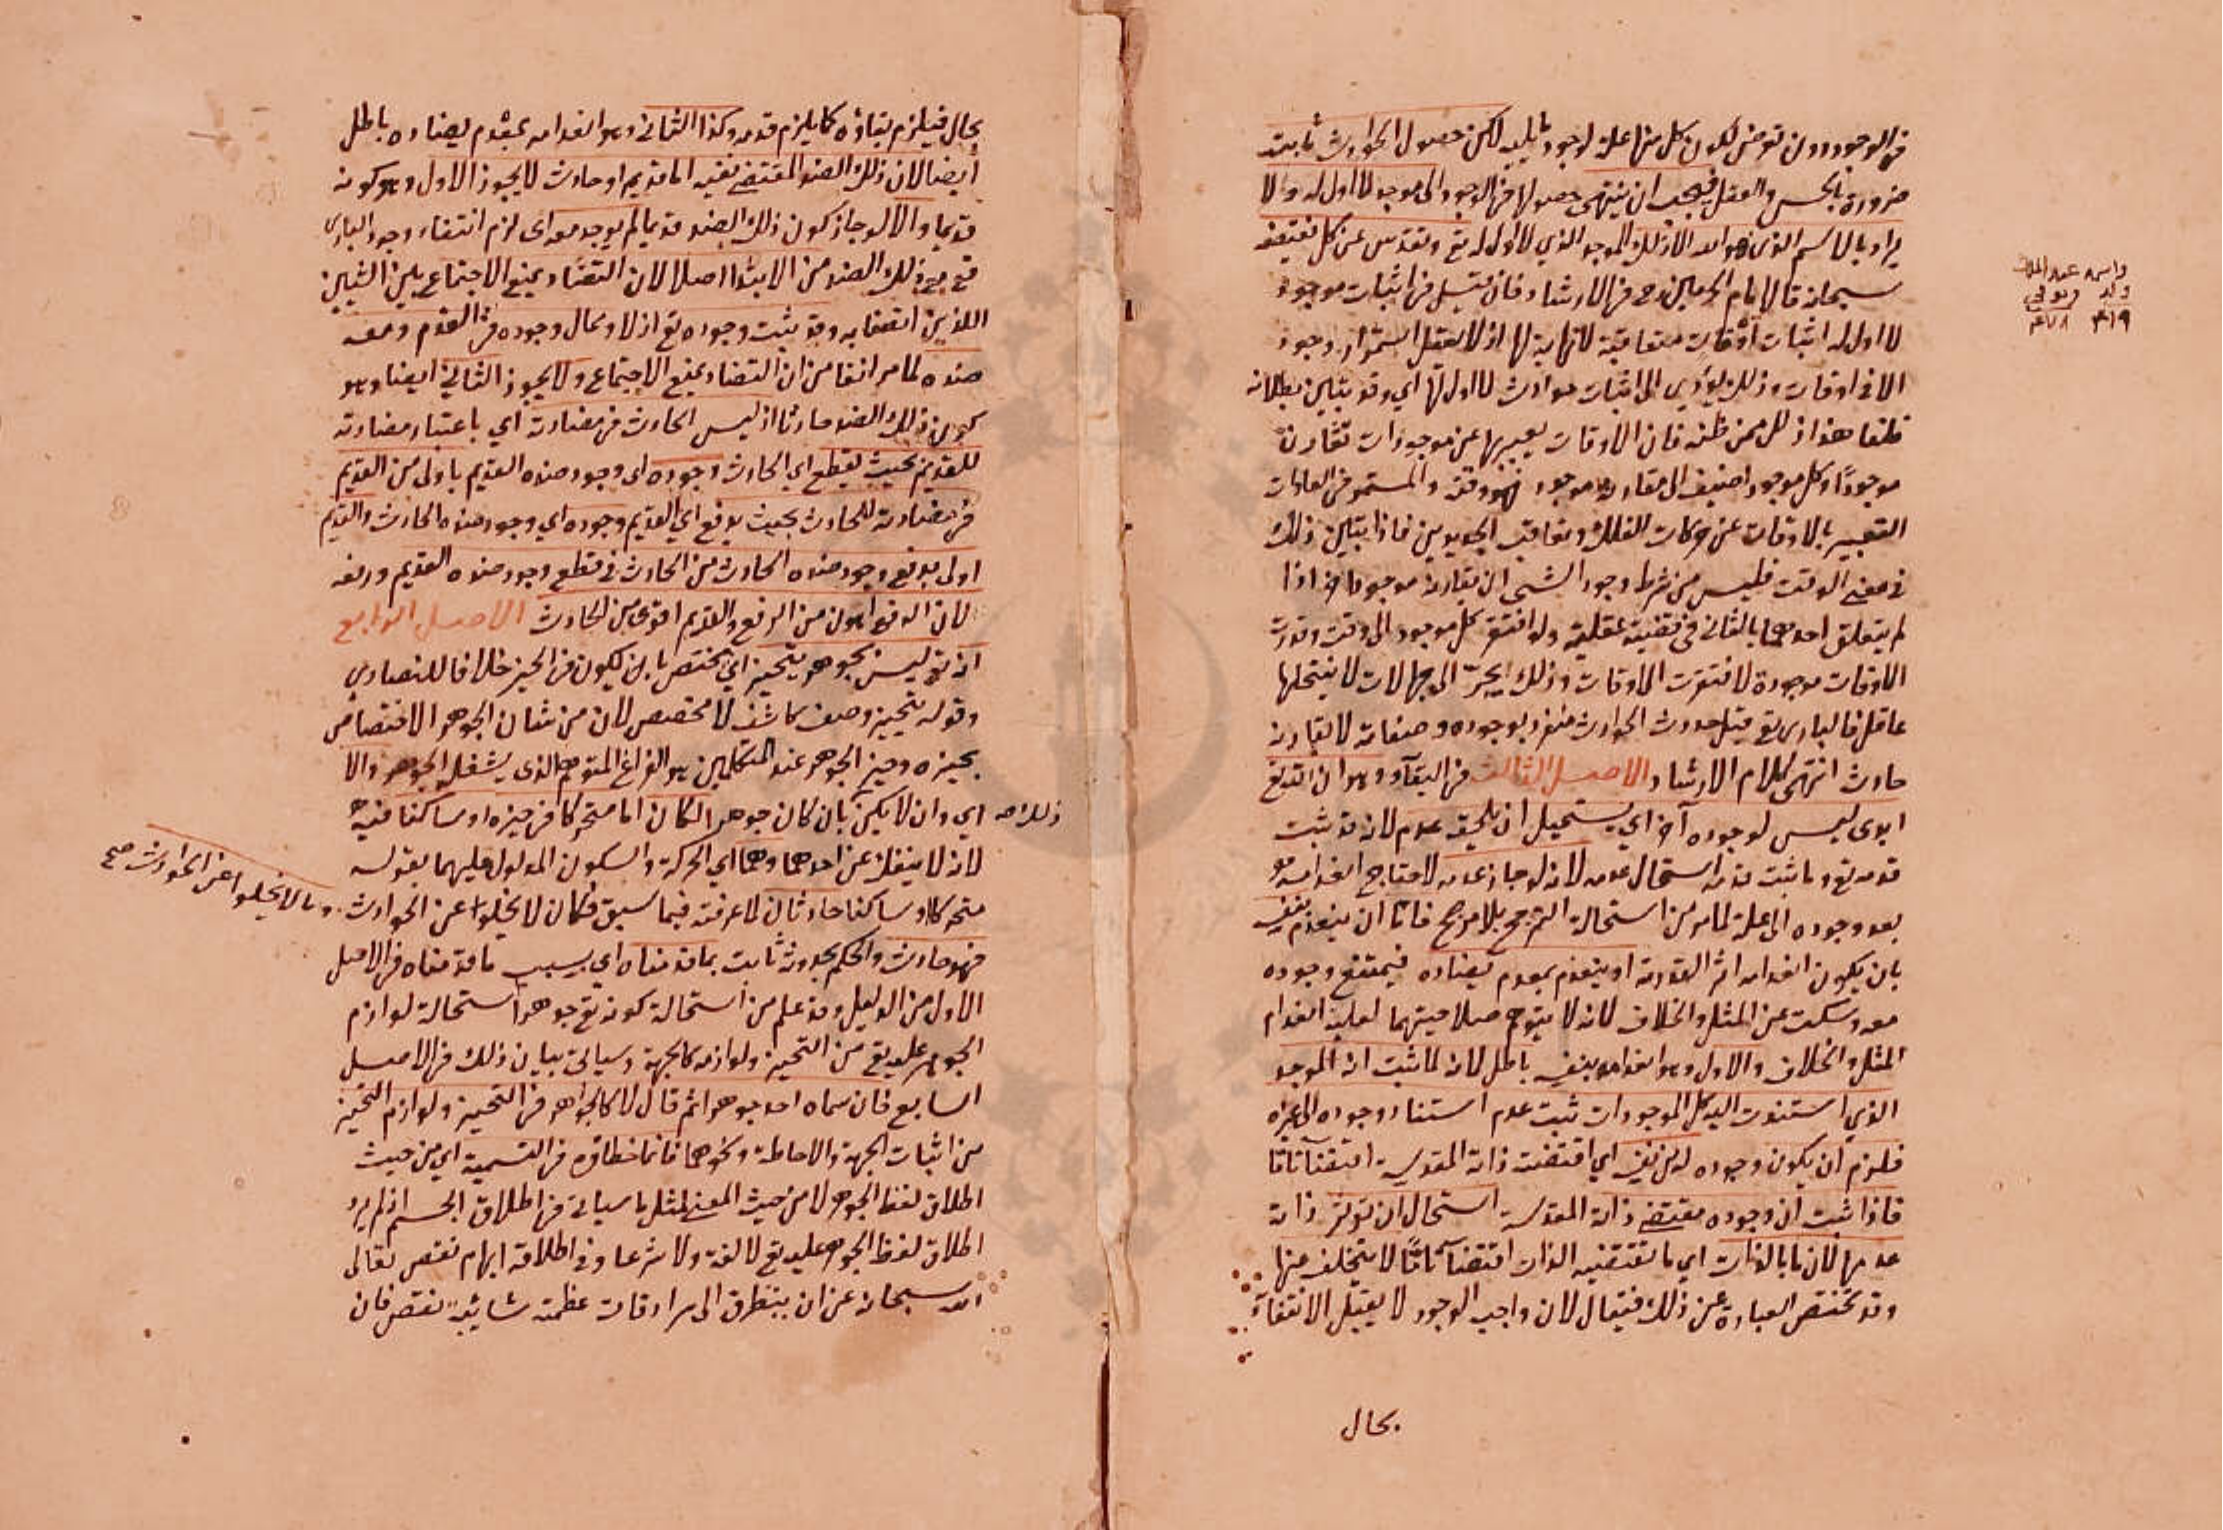 في الوجود دون توفر لكون كل منها علة لوجود ما يليه لكن حصول الحوادث ثابت
ضرورة بالحس والعقل فيجب ان ينتهي حصولها في الوجود الى موجد لا اول له ولا
يراد بالاسم الذي هو الله الا ذلك الموجد الذي لا اول له تع وتقدس عن كل نقيصة
سبحانه قال امام الحرمين رح في الارشاد فان قيل في اثبات موجود
لا اول له اثبات اوقات متعاقبة لا نهاية لها اذ لا يعقل استمرار وجود
الا في اوقات وذلك يؤدي الى اثبات حوادث لا اول لها اي وقد بتبين بطلانه
قلنا هذا زلل ممن ظنه فان الاوقات يعبر بها عن موجودات تقارن
موجودًا وكل موجود اضيف الى مقارنة موجود فهو وقته والمستمر في العادات
التعبير بالاوقات عن حركات الفلك وتعاقب الجديدين فاذا بتبين ذلك
في معنى الوقت فليس من شرط وجود الشئ ان يقارنه موجود اخر اذا
لم يتعلق احدهما بالثاني في قضية عقلية ولو افتقر كل موجود الى وقت وقدرت
الاوقات موجودة لافتقرت الى اوقات وذلك يجرّ الى جهالات لا ينتحلها
عاقل فالباري تع قبل حدوث الحوادث منفرد بوجوده وصفاته لا يقارنه
حادث انتهى كلام الارشاد الاصل الثالث في البقآء وهو ان الله تع
ابدي ليس لوجوده آخر اي يستحيل ان يلحقه عدم لانه قد ثبت
قدمه تع وما ثبت قدمه استحال عدمه لانه لو جاز عدمه لاحتاج انعدامه
بعد وجوده الى علة لما مر من استحالة الترجح بلا مرجح فاما ان ينعدم بنفسه
بان يكون انعدامه اثر القدرته او ينعدم بمعدم يضاده فيمتنع وجوده
معه وسكت عن المثل والخلاف لانه لا يتوهم صلاحيتهما لعلية انعدام
المثل والخلاف والاول وهو انعدامه بنفسه باطل لانه لما ثبت انه الموجد
الذي استندت اليه كل الموجودات ثبت عدم استناد وجوده الى غيره
فلزم ان يكون وجوده له من نفسه اي اقتضته ذاته المقدسة اقتضآ تاما
فاذا ثبت ان وجوده مقتضى ذاته المقدسة استحال ان تؤثر ذاته
عدمها لان ما بالذات اي ما تقتضيه الذات اقتضآ تامًا لا يتخلف عنها
وقد تختصر العبارة عن ذلك فيقال لان واجب الوجود لا يقبل الانتفآء
بحال
بحال فيلزم بقاؤه كما يلزم قدمه وكذا الثاني وهو انعدامه بمعدم يضاده باطل
ايضا لان ذلك الضد المقتضى نفيه اما قديم او حادث لا يجوز الاول وهو كونه
قديما والا لو جاز كون ذلك الضد قديما لم يوجد معه اي لزم انتفاء وجود الباري
تع مع ذلك الضد من الابتدا اصلا لان التضاد يمنع الاجتماع بين الشيئين
اللذين اتصفا به وقد ثبت وجوده تع ازلا ومحال وجوده في القدم ومعه
ضده لما مر انفا من ان التضاد يمنع الاجتماع ولا يجوز الثاني ايضا وهو
كون ذلك الضد حادثا اذ ليس الحادث في مضادته اي باعتبار مضادته
للقديم بحيث يقطع اي الحادث وجوده اي وجود ضده القديم باولى من القديم
في مضادته للحادث بحيث يدفع اي القديم وجوده اي وجود ضده الحادث والقديم
اولى بدفع وجود ضده الحادث من الحادث في قطع وجود ضده القديم ورفعه
لان الدفع اهون من الرفع والقديم اقوى من الحادث الاصل الرابع
انه تع ليس بجوهر يتحيز اي يختص بان يكون في الحيز خلافا للنصارى
وقوله يتحيز وصف كاشف لا مخصص لان من شان الجوهر الاختصاص
بحيزه وحيز الجوهر عند المتكلمين هو الفراغ المتوهم الذي يشغله الجوهر والا
اي وان لا يكن بان كان جوهرا لكان اما متحركا في حيزه او ساكنا فيه
لانه لا ينفك عن احدهما وهما اي الحركة والسكون المدلول عليهما بقوله
متحركا وساكنا حادثان لما عرفته فيما سبق فكان لا يخلوا عن الحوادث
وما لا يخلوا عن الحوادث صح
فهو حادث والحكم بحدوثه ثابت بما قدمناه اي بسبب ما قدمناه في الاصل
الاول من الدليل وقد علم من استحالة كونه تع جوهرا استحالة لوازم
الجوهر عليه تع من التحيز ولوازمه كالجهة وسياتي بيان ذلك في الاصل
السابع فان سماه احد جوهرا ثم قال لا كالجواهر في التحيز ولوازم التحيز
من اثبات الجهة والاحاطة ونحوهما فانما خطاؤه في التسمية اي من حيث
اطلاق لفظ الجوهر لا من حيث المعنى لمثل ما سياتي في اطلاق الجسم اذ لم يرد
اطلاق لفظ الجوهر عليه تع لا لغة ولا شرعا وفي اطلاقه ايهام نقص تعالى
الله سبحانه عن ان يتطرق الى سرادقات عظمته شائبة نقص فان